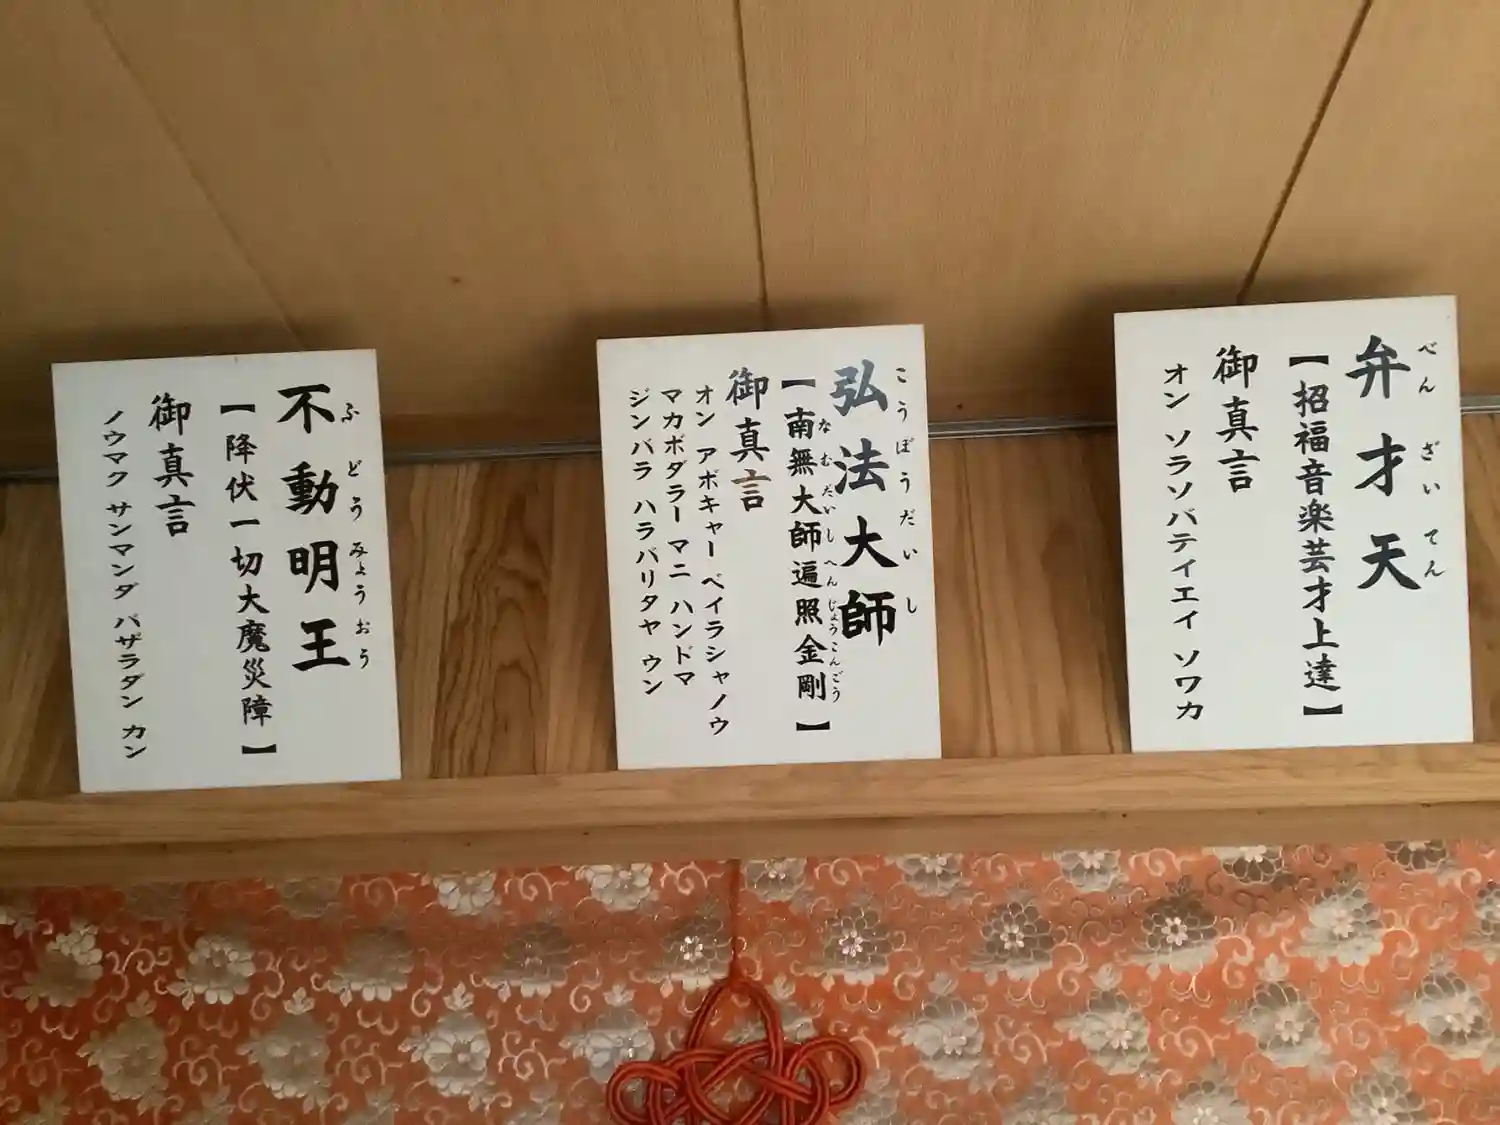 弁才天
べんざいてん
【招福音楽芸才上達】
御真言
オン ソラソバテイエイ ソワカ
弘法大師
こうぼうだいし
【南無大師遍照金剛】
なむだいしへんじょうこんごう
御真言
オン アボキャー ベイラシャノウ
マカボダラーマニ ハンドマ
ジンバラ ハラバリタヤ ウン
不動明王
ふどうみょうおう
【降伏一切大魔災障】
御真言
ノウマク サンマンダ バザラダン カン